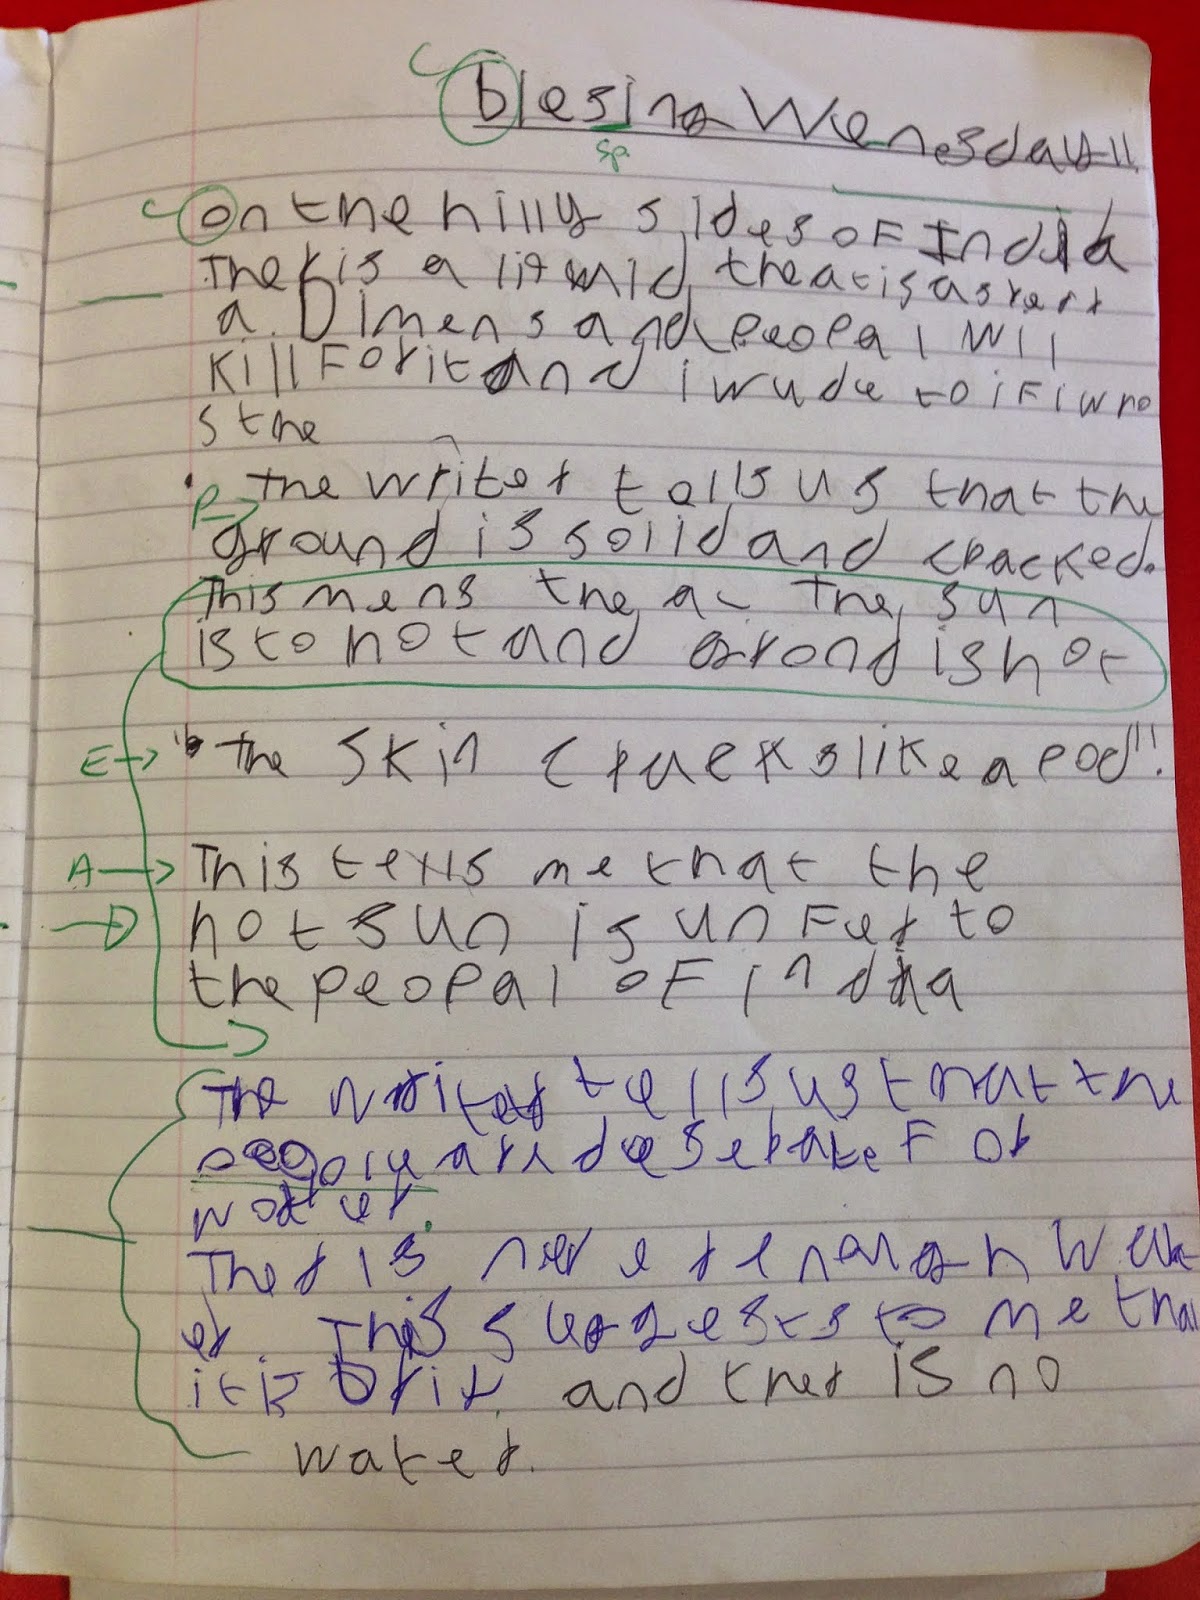 blesing Wenesday 11
sp
On the hilly sides of India
Ther is a theat is a
a Dimens and peopal will
Kill For it and i wude to if i w no
s the
P The writer tells us that the
ground is solid and cracked.
This mens the at The sun
is to hot and grond is hot
E "The skin cracks like a pod".
A This tells me that the
D hot sun is unFer to
the peopal oF india
The writer tells us that the
are desepate For
water.
Ther is never enaugh wat
er. This suggests to me that
it is and ther is no
water.